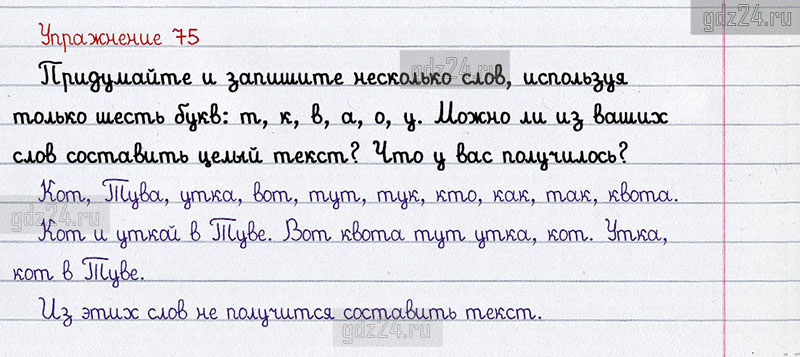 gdz24.ru
Упражнение 75
gdz24.ru
Придумайте и запишите несколько слов, используя
только шесть букв: т, к, в, а, о, у. Можно ли из ваших
слов составить целый текст? Что у вас получилось?
Кот, Тува, утка, вот, тут, тук, кто, как, так, квота.
gdz24.ru
Кот и уткой в Туве. Вот квота тут утка, кот. Утка,
кот в Туве.
Из этих слов не получится составить текст.
gdz24.ru